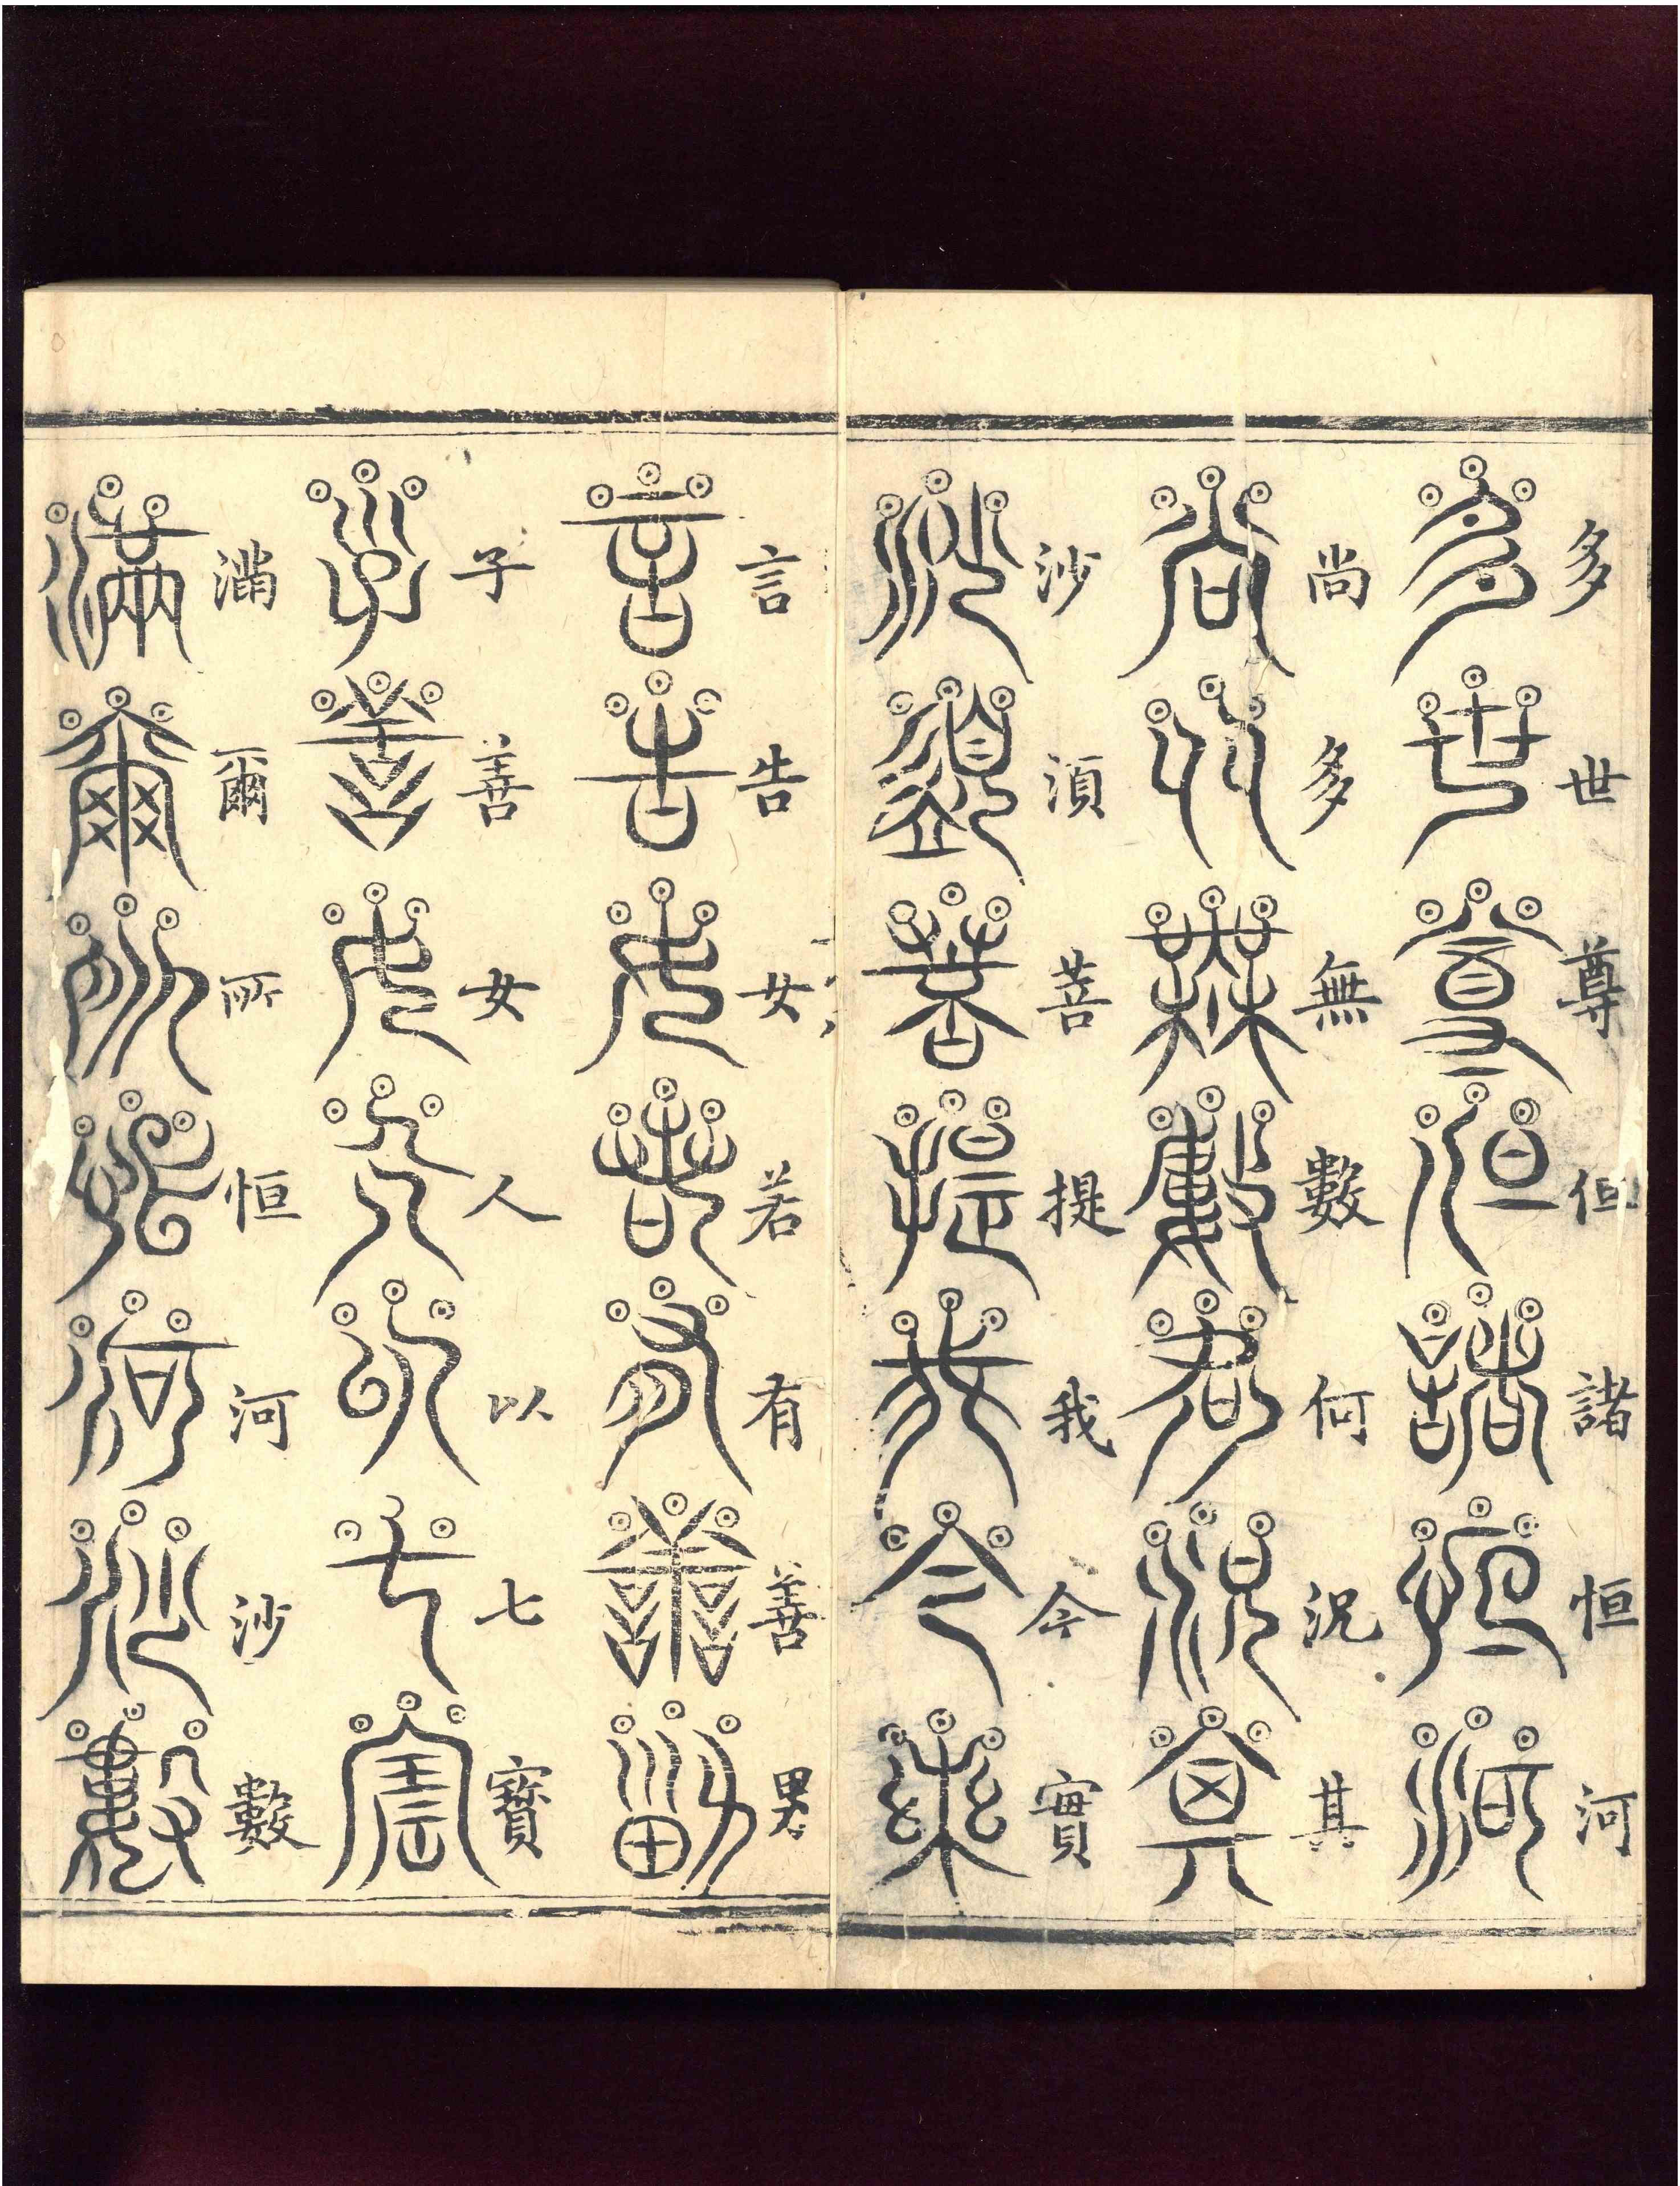 多世尊但諸恒河
尚多無數何況其
沙須菩提我今實
言告女若有善男
子善女人以七寶
滿爾所恒河沙數